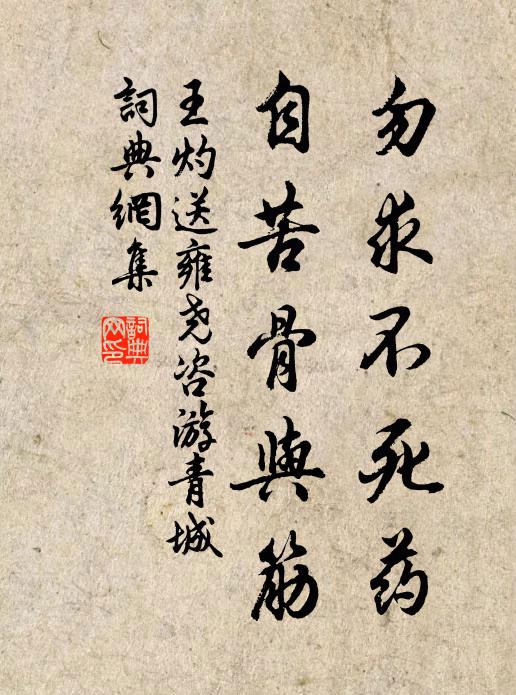 勿求不死药
自苦骨與筋
王灼送雍尧咨游青城
詞典網集
詞典网印